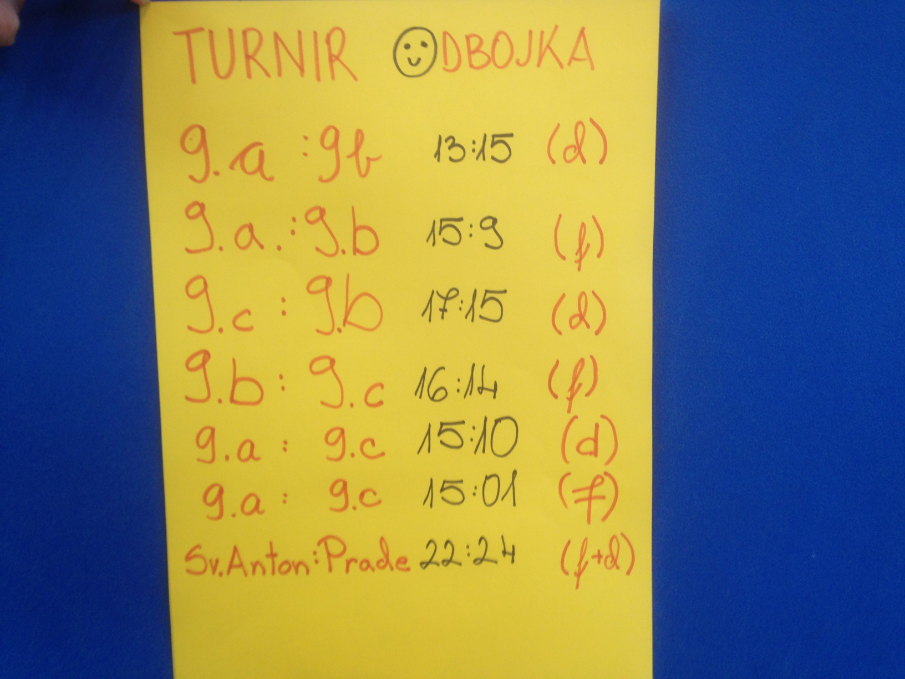 TURNIR ODBOJKA
9.a : 9b 13:15 (d)
9.a. : 9.b 15:9 (f)
9.c : 9.b 17:15 (d)
9.b : 9.c 16:14 (f)
9.a : 9.c 15:10 (d)
9.a : 9.c 15:01 (f)
Sv.Anton:Prade 22:24 (f+d)